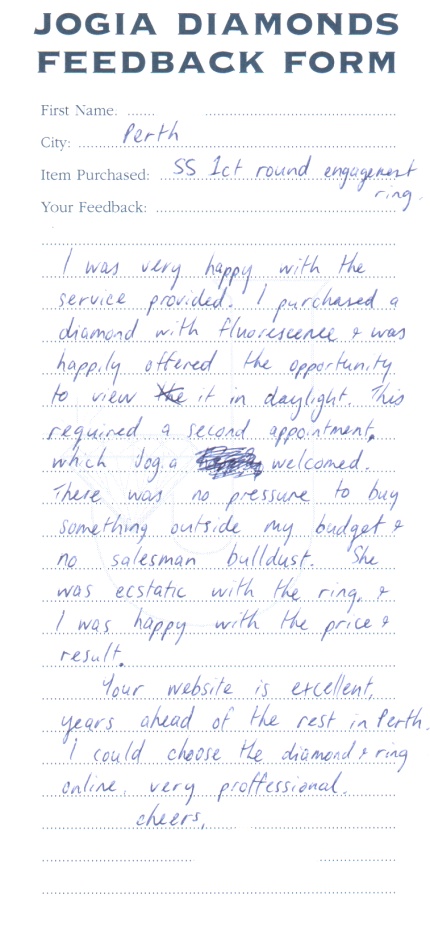 JOGIA DIAMONDS
FEEDBACK FORM
First Name:
City: Perth
Item Purchased: SS 1ct round engagement
ring.
Your Feedback:
I was very happy with the
service provided. I purchased a
diamond with fluorescence & was
happily offered the opportunity
to view the it in daylight. This
required a second appointment,
which Jogia welcomed.
There was no pressure to buy
something outside my budget &
no salesman bulldust. She
was ecstatic with the ring, &
I was happy with the price &
result.
Your website is excellent,
years ahead of the rest in Perth.
I could choose the diamond & ring
online. very proffessional.
cheers,